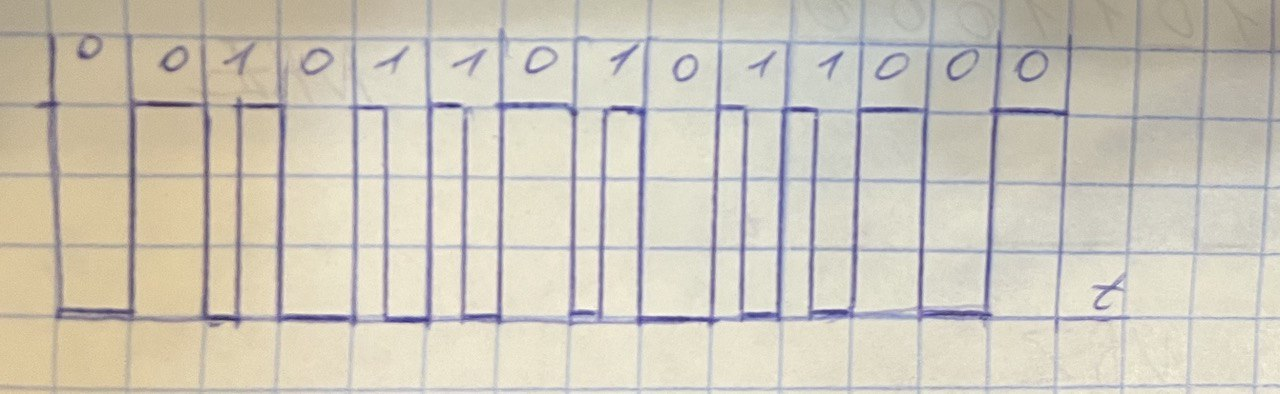 0 0 1 0 1 1 0 1 0 1 1 0 0 0
t